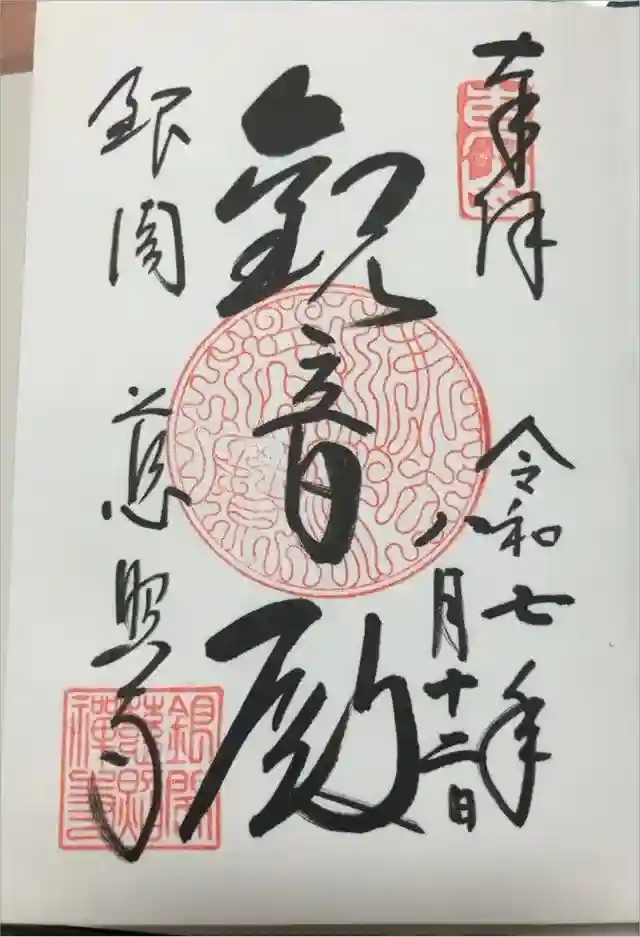 奉拝
令和七年
八月十二日
観音殿
銀閣
慈照寺
銀閣
慈照
禅寺